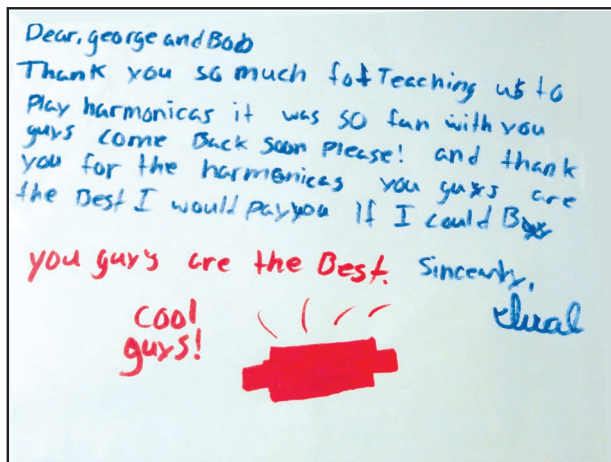 Dear, george and Bob
Thank you so much fot Teaching us to
Play harmonicas it was so fun with you
guys come Back soon Please! and thank
you for the harmonicas you guys are
the Best I would pay you If I could
you guys are the Best. Sincerty,
cool
guys!